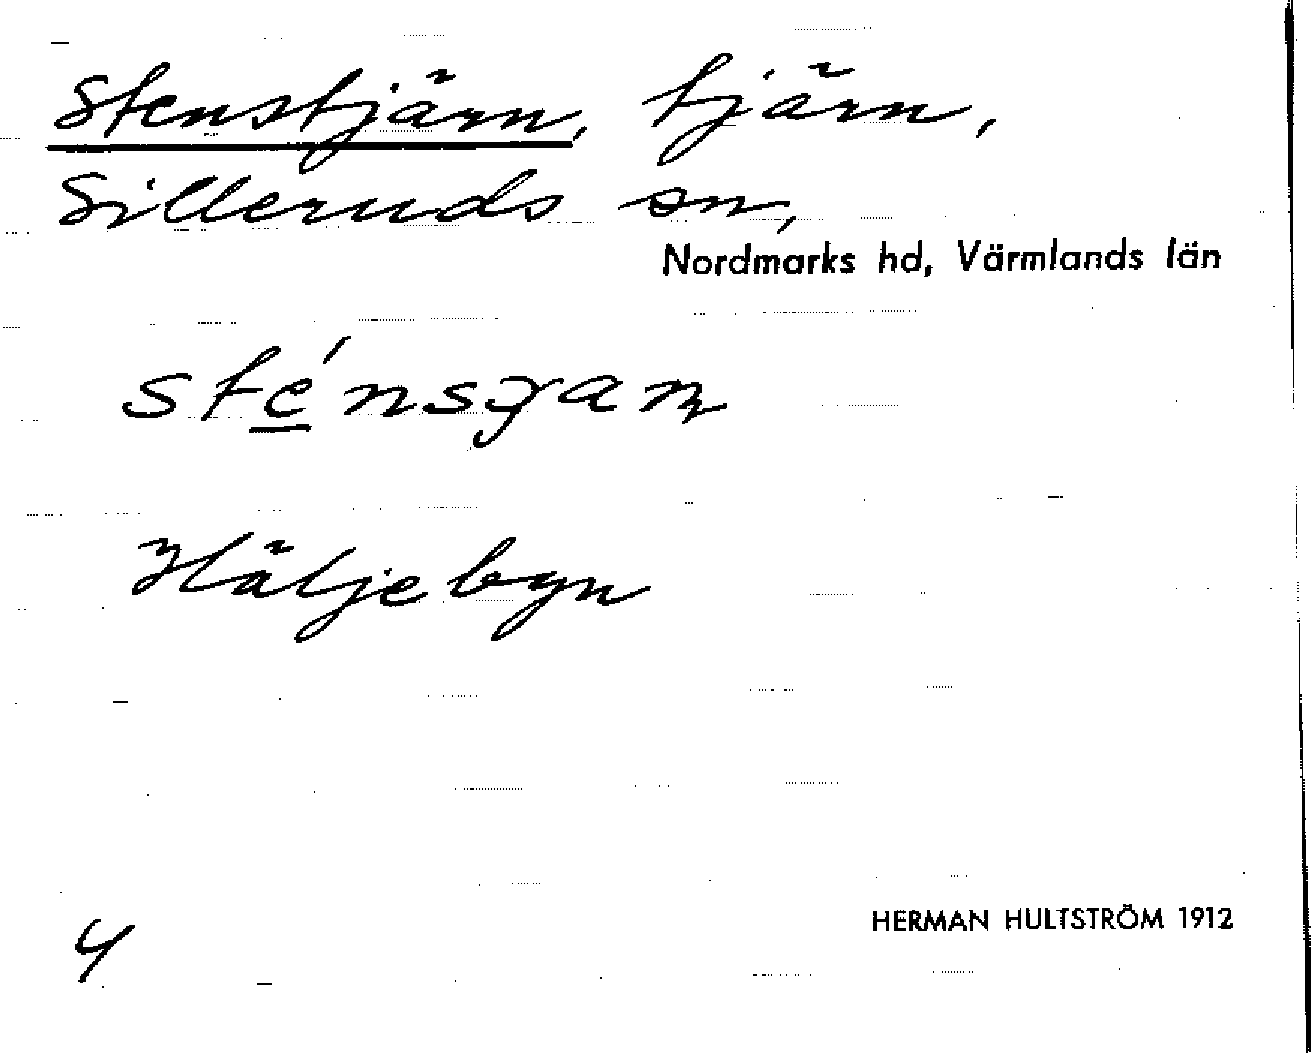 Stenstjärn, tjärn,
Silleruds sn,
Nordmarks hd, Värmlands län
Häljebyn
4
HERMAN HULTSTRÖM 1912